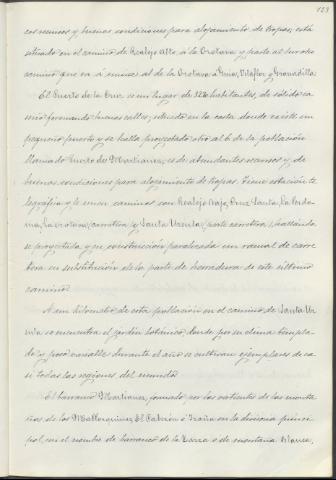 123
cos recursos y buenas condiciones para alojamiento de tropas, está
situado en el camino de Realejo Alto á la Orotava y parte al sur otro
camino que va á unirse al de la Orotava á Guia, Vilaflor y Granadilla.
El Puerto de la Cruz es un lugar de habitantes, de sólido ca
serio formando buenas calles; situado en la costa donde existe un
pequeño puerto y se halla proyectado otro al E. de la población
llamado Puerto de Martianez, es de abundantes recursos y de
buenas condiciones para alojamiento de tropas. Tiene estación te
legráfica y le unen caminos con Realejo bajo, Cruz Santa, la Perdo
ma, la Orotava, carretera, y Santa Ursula, parte carretera, hallándo
se proyectado y su construcción paralizada un ramal de carre
tera en substitución de la parte de herradura de este último
camino.
A un kilometro de esta población en el camino de Santa Ur
sula se encuentra el jardin botánico, donde por su clima templa
do y poco variable durante el año se cultivan ejemplares de ca
si todas las regiones del mundo.
El barranco Martianez, formado por las vertientes de las monta
ñas de los Mallorquines, El Cabezón é Izaña en la divisoria princi
pal, con el nombre de barranco de la Zarza o de montaña blanca,